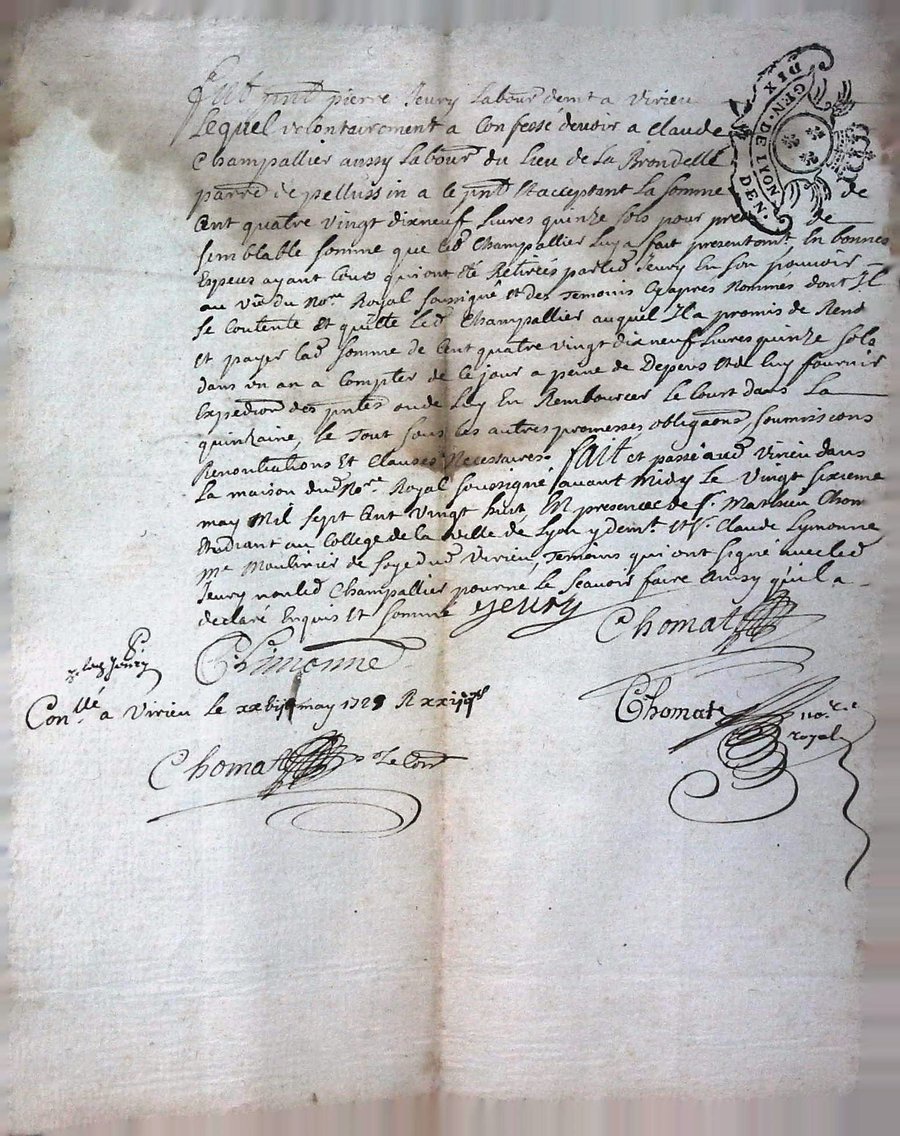 GEN · DE LYON
DIX DEN ·
Fut pnt pierre Jeury Labour demt a Virieu
Lequel volontairement a Confesse devoir a Claude
Champallier aussy Labour du Lieu de La Brondelle
parre de pellussin a le pnt et acceptant La somme de
Cent quatre vingt dixneuf Livres quinze sols pour pret de
semblable somme que led Champallier Luy a fait presentemt En bonnes
Especes ayant Cours qui ont été Retirées par led Jeury En son pouvoir
au vû du Nore Royal soussigné et des Temoins Cyaprès Nommés dont Il
se Contente et quitte Led Champallier auquel Il a promis de Rend
et payer lad somme de Cent quatre vingt dixneuf Livres quinze sols
dans un an a Compter de Ce jour a peine de Depens et de Luy fournir
Expedion des pntes ou de Luy En Rembourcer le Court dans La
quinzaine, le Tout sous les autres promesses obligaons, soumiscions
Renontiations et Clauses Necessaires. fait et passé aud Virieu dans
La maison dud Nore Royal soussigné avant midy Le Vingt sixieme
may Mil sept Cent vingt huit, En presence de sr Mathieu Chom
Etudiant au College de la ville de Lyon y demt et sr Claude Lymonne
Me Moulinier de soye dud Virieu, Temoins qui ont signé avec led
Jeury non led Champallier pour ne le scavoir faire Aussy qu'il a
declaré Enquis et sommé Jeury
Chomat
C. Limonne
Jeury
Conllé a Virieu Le may 1728 R
Chomat
Chomat nore
royal